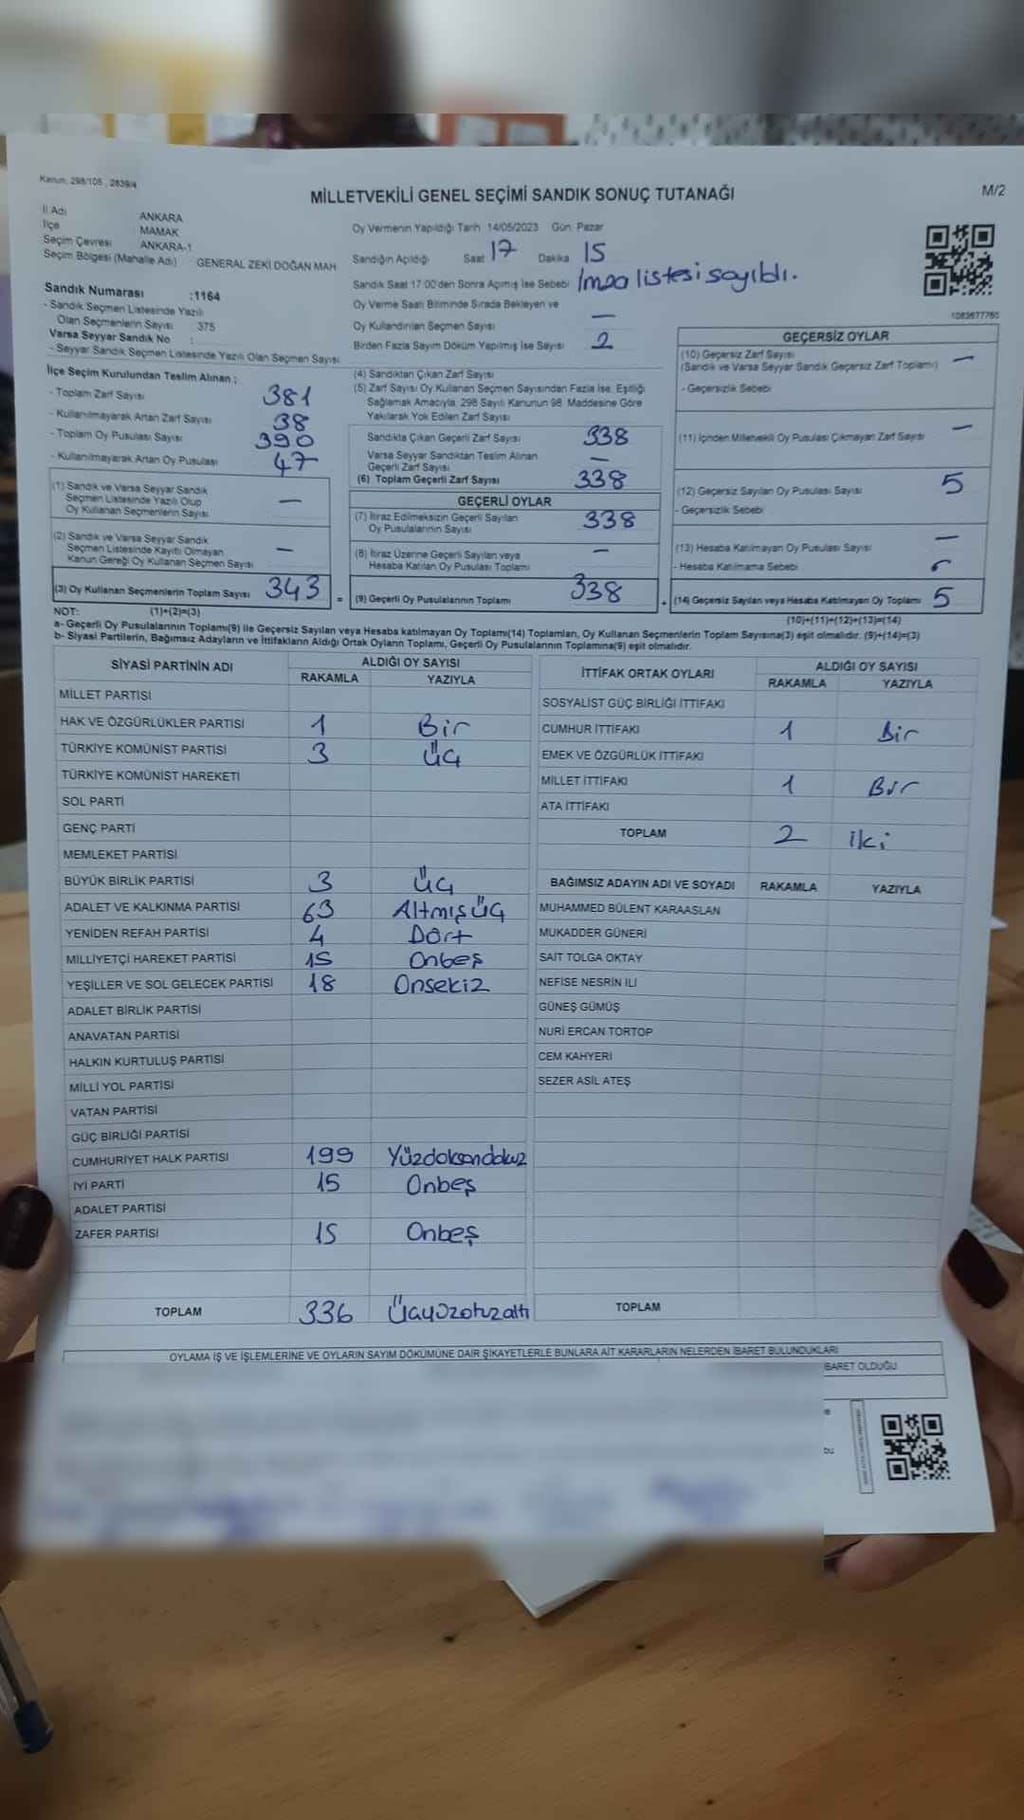 Kanun: 298/105, 2839/4
MİLLETVEKİLİ GENEL SEÇİMİ SANDIK SONUÇ TUTANAĞI
M/2
İl Adı ANKARA
İlçe MAMAK
Seçim Çevresi ANKARA-1
Seçim Bölgesi (Mahalle Adı) GENERAL ZEKİ DOĞAN MAH
Sandık Numarası :1164
- Sandık Seçmen Listesinde Yazılı
Olan Seçmenlerin Sayısı : 375
Varsa Seyyar Sandık No :
- Seyyar Sandık Seçmen Listesinde Yazılı Olan Seçmen Sayısı
İlçe Seçim Kurulundan Teslim Alınan ;
- Toplam Zarf Sayısı 381
- Kullanılmayarak Artan Zarf Sayısı 38
- Toplam Oy Pusulası Sayısı 390
- Kullanılmayarak Artan Oy Pusulası 47
(1) Sandık ve Varsa Seyyar Sandık
Seçmen Listesinde Yazılı Olup
Oy Kullanan Seçmenlerin Sayısı —
(2) Sandık ve Varsa Seyyar Sandık
Seçmen Listesinde Kayıtlı Olmayan
Kanun Gereği Oy Kullanan Seçmen Sayısı —
(3) Oy Kullanan Seçmenlerin Toplam Sayısı 343 =
NOT: (1)+(2)=(3)
Oy Vermenin Yapıldığı Tarih 14/05/2023 Gün Pazar
Sandığın Açıldığı Saat 17 Dakika 15
Sandık Saat 17:00'den Sonra Açılmış İse Sebebi İmza listesi sayıldı.
Oy Verme Saati Bitiminde Sırada Bekleyen ve
Oy Kullandırılan Seçmen Sayısı —
Birden Fazla Sayım Döküm Yapılmış İse Sayısı 2
(4) Sandıktan Çıkan Zarf Sayısı
(5) Zarf Sayısı Oy Kullanan Seçmen Sayısından Fazla İse, Eşitliği
Sağlamak Amacıyla, 298 Sayılı Kanunun 98. Maddesine Göre
Yakılarak Yok Edilen Zarf Sayısı
Sandıkta Çıkan Geçerli Zarf Sayısı 338
Varsa Seyyar Sandıktan Teslim Alınan
Geçerli Zarf Sayısı —
(6) Toplam Geçerli Zarf Sayısı 338
GEÇERLİ OYLAR
(7) İtiraz Edilmeksizin Geçerli Sayılan
Oy Pusulalarının Sayısı 338
(8) İtiraz Üzerine Geçerli Sayılan veya
Hesaba Katılan Oy Pusulası Toplamı —
(9) Geçerli Oy Pusulalarının Toplamı 338 +
1083677765
GEÇERSİZ OYLAR
(10) Geçersiz Zarf Sayısı
(Sandık ve Varsa Seyyar Sandık Geçersiz Zarf Toplamı) —
- Geçersizlik Sebebi
(11) İçinden Milletvekili Oy Pusulası Çıkmayan Zarf Sayısı —
(12) Geçersiz Sayılan Oy Pusulası Sayısı 5
- Geçersizlik Sebebi
(13) Hesaba Katılmayan Oy Pusulası Sayısı —
- Hesaba Katılmama Sebebi
(14) Geçersiz Sayılan veya Hesaba Katılmayan Oy Toplamı 5
(10)+(11)+(12)+(13)=(14)
a- Geçerli Oy Pusulalarının Toplamı(9) ile Geçersiz Sayılan veya Hesaba katılmayan Oy Toplamı(14) Toplamları, Oy Kullanan Seçmenlerin Toplam Sayısına(3) eşit olmalıdır. (9)+(14)=(3)
b- Siyasi Partilerin, Bağımsız Adayların ve İttifakların Aldığı Ortak Oyların Toplamı, Geçerli Oy Pusulalarının Toplamına(9) eşit olmalıdır.
SİYASİ PARTİNİN ADI ALDIĞI OY SAYISI
RAKAMLA YAZIYLA
MİLLET PARTİSİ
HAK VE ÖZGÜRLÜKLER PARTİSİ 1 Bir
TÜRKİYE KOMÜNİST PARTİSİ 3 Üç
TÜRKİYE KOMÜNİST HAREKETİ
SOL PARTİ
GENÇ PARTİ
MEMLEKET PARTİSİ
BÜYÜK BİRLİK PARTİSİ 3 Üç
ADALET VE KALKINMA PARTİSİ 63 Altmışüç
YENİDEN REFAH PARTİSİ 4 Dört
MİLLİYETÇİ HAREKET PARTİSİ 15 Onbeş
YEŞİLLER VE SOL GELECEK PARTİSİ 18 Onsekiz
ADALET BİRLİK PARTİSİ
ANAVATAN PARTİSİ
HALKIN KURTULUŞ PARTİSİ
MİLLİ YOL PARTİSİ
VATAN PARTİSİ
GÜÇ BİRLİĞİ PARTİSİ
CUMHURİYET HALK PARTİSİ 199 Yüzdoksandokuz
İYİ PARTİ 15 Onbeş
ADALET PARTİSİ
ZAFER PARTİSİ 15 Onbeş
TOPLAM 336 Üçyüzotuzaltı
İTTİFAK ORTAK OYLARI ALDIĞI OY SAYISI
RAKAMLA YAZIYLA
SOSYALİST GÜÇ BİRLİĞİ İTTİFAKI
CUMHUR İTTİFAKI 1 Bir
EMEK VE ÖZGÜRLÜK İTTİFAKI
MİLLET İTTİFAKI 1 Bir
ATA İTTİFAKI
TOPLAM 2 iki
BAĞIMSIZ ADAYIN ADI VE SOYADI RAKAMLA YAZIYLA
MUHAMMED BÜLENT KARAASLAN
MUKADDER GÜNERİ
SAİT TOLGA OKTAY
NEFİSE NESRİN İLİ
GÜNEŞ GÜMÜŞ
NURİ ERCAN TORTOP
CEM KAHYERİ
SEZER ASİL ATEŞ
TOPLAM
OYLAMA İŞ VE İŞLEMLERİNE VE OYLARIN SAYIM DÖKÜMÜNE DAİR ŞİKAYETLERLE BUNLARA AİT KARARLARIN NELERDEN İBARET BULUNDUKLARI
İBARET OLDUĞU